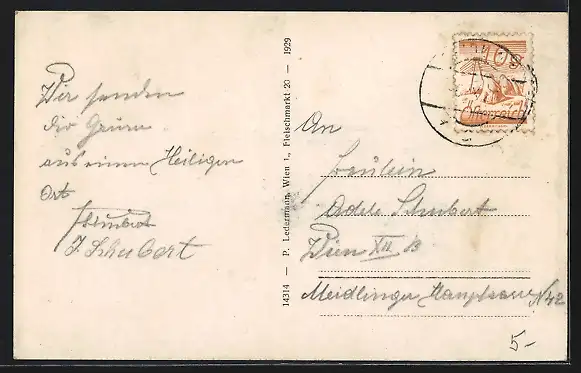 Wir senden
dir Grüsse
aus einem Heiligen
Ort
J. Schubert
14314 — P. Ledermann, Wien I., Fleischmarkt 20 — 1929
Österreich
An
Fräulein
Adele Schubert
Wien XII
Meidlinger Hauptstrasse N 42
5.-